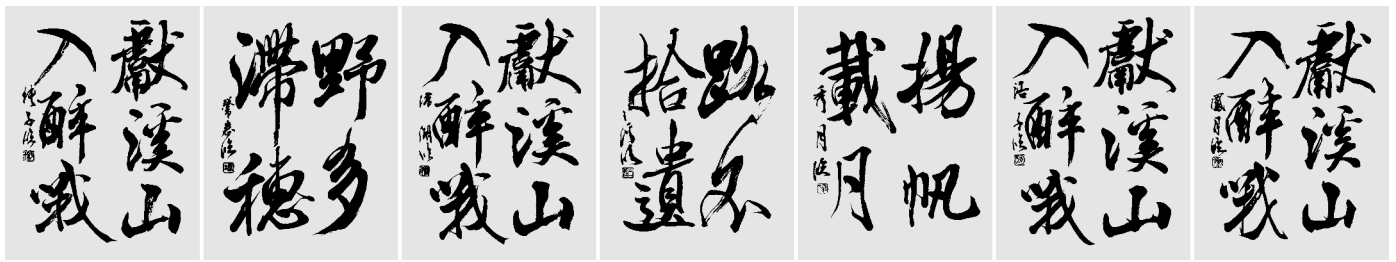 獻溪山
入醉哦
野多
滯穗
獻溪山
入醉哦
路不
拾遺
揚帆
載月
秀月临
獻溪山
入醉哦
獻溪山
入醉哦